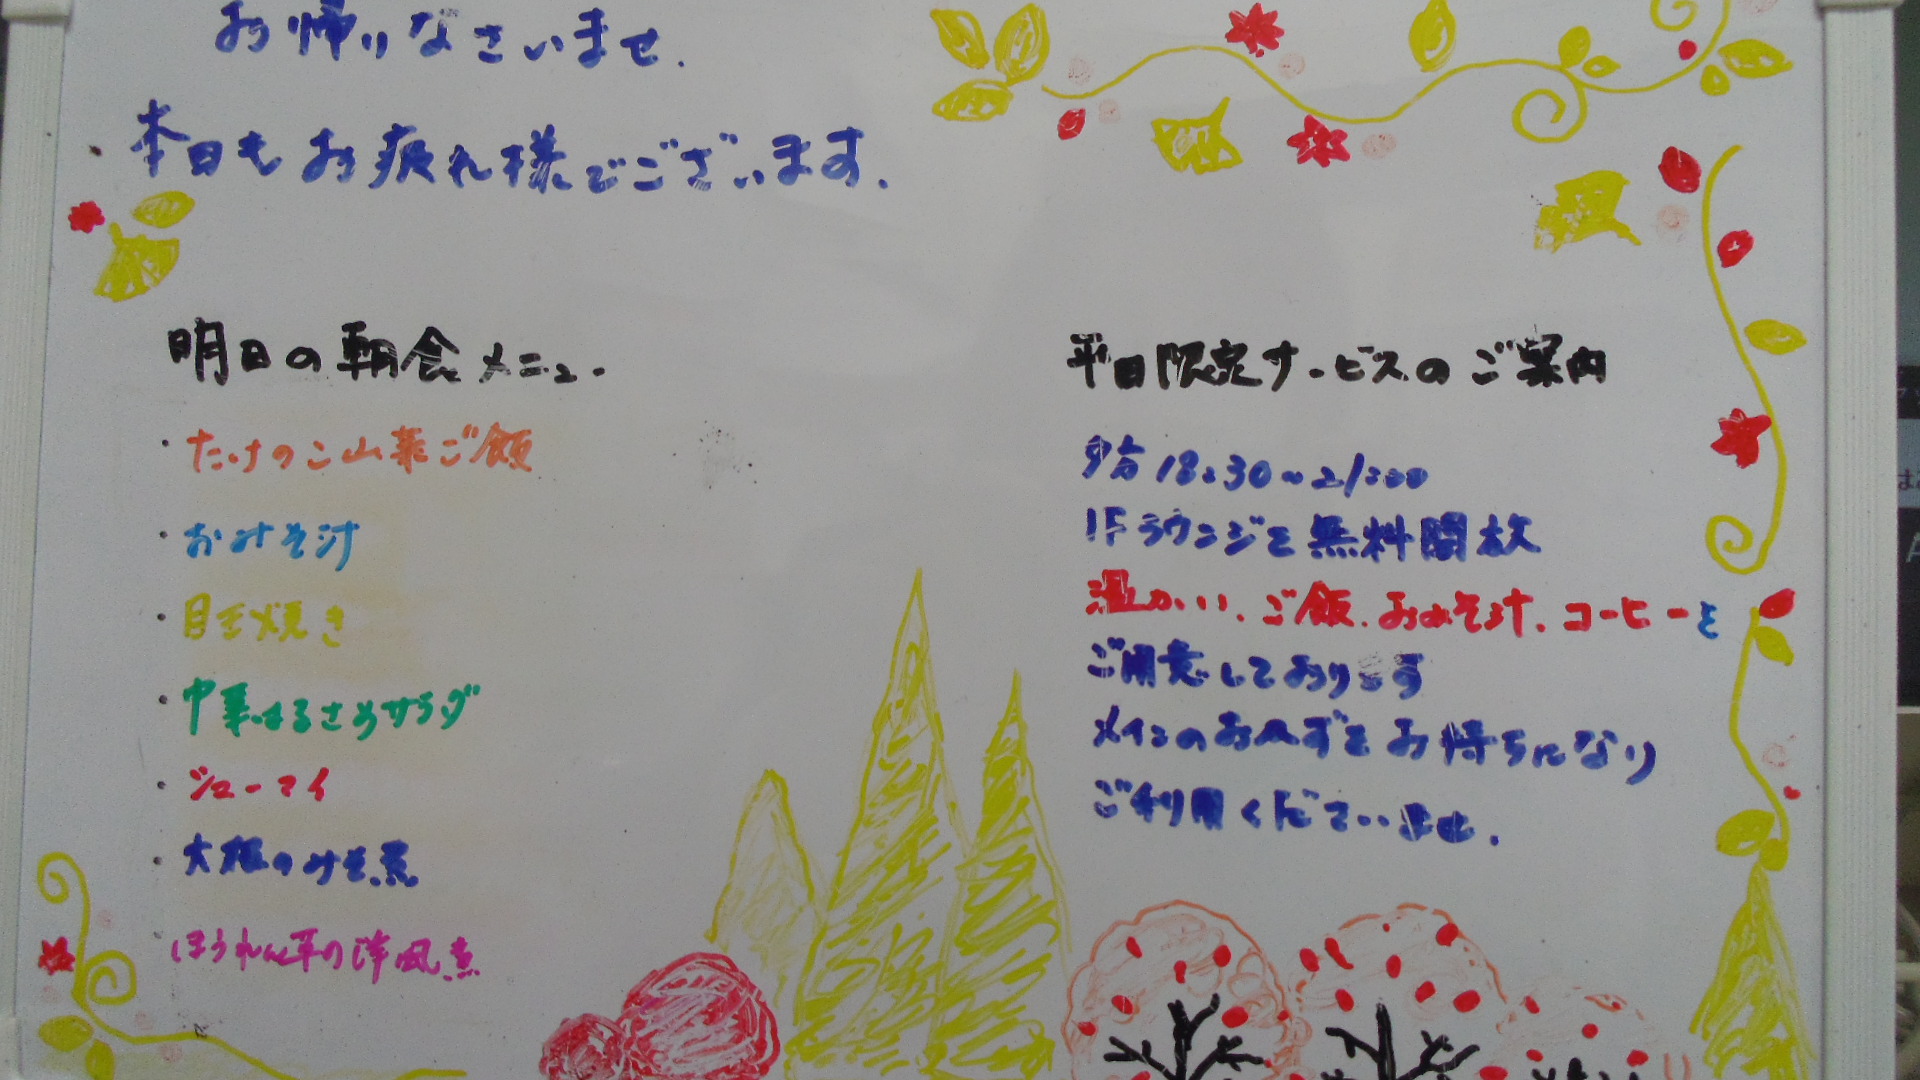 お帰りなさいませ.
本日もお疲れ様でございます.
明日の朝食メニュー
・たけのこ山菜ご飯
・おみそ汁
・目玉焼き
・中華はるさめサラダ
・シューマイ
・大根のみそ煮
・ほうれん草の洋風煮
平日限定サービスのご案内
夕方18:30~21:00
1Fラウンジを無料開放
温かい、ご飯、おみそ汁、コーヒーを
ご用意しております
メインのおかずをお持ちになり
ご利用くださいませ.